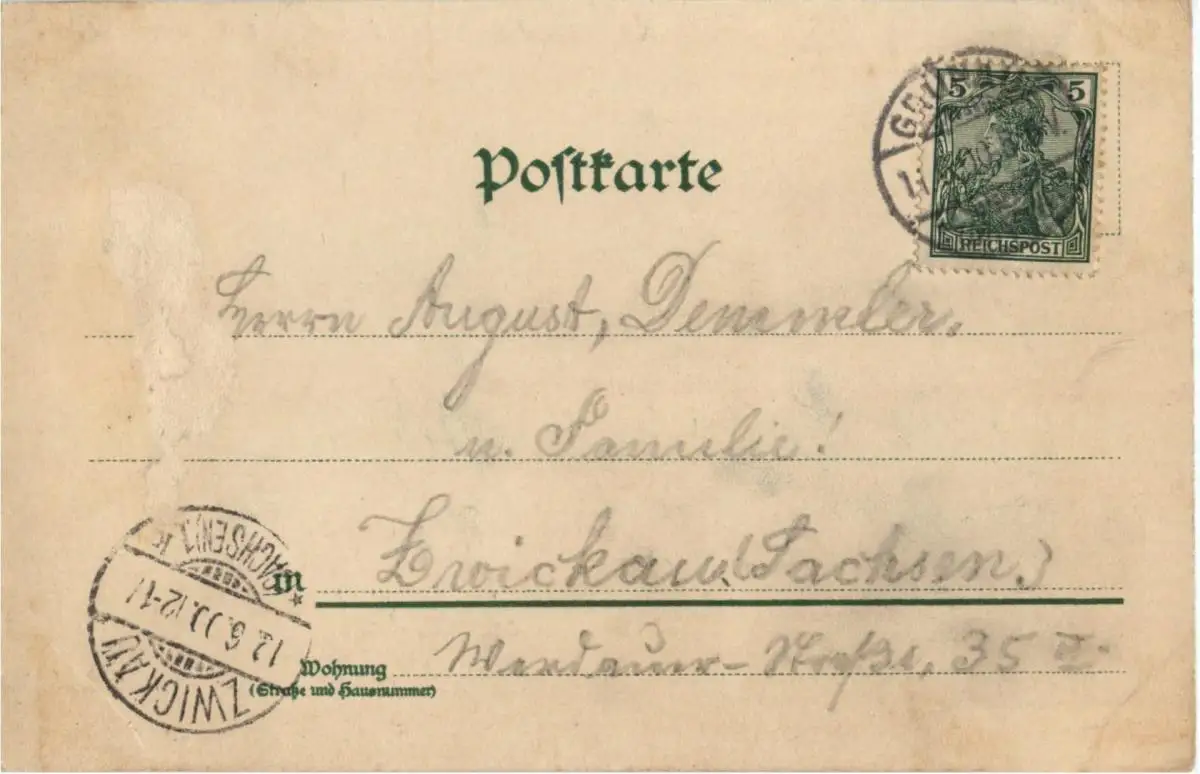 5 5
REICHSPOST
Postkarte
Herrn August, Demmler,
u. Familie!
in Zwickau (Sachsen.)
Wohnung Werdauer- 35 II.
(Straße und Hausnummer)
ZWICKAU
(SACHSEN) 1
12.6.